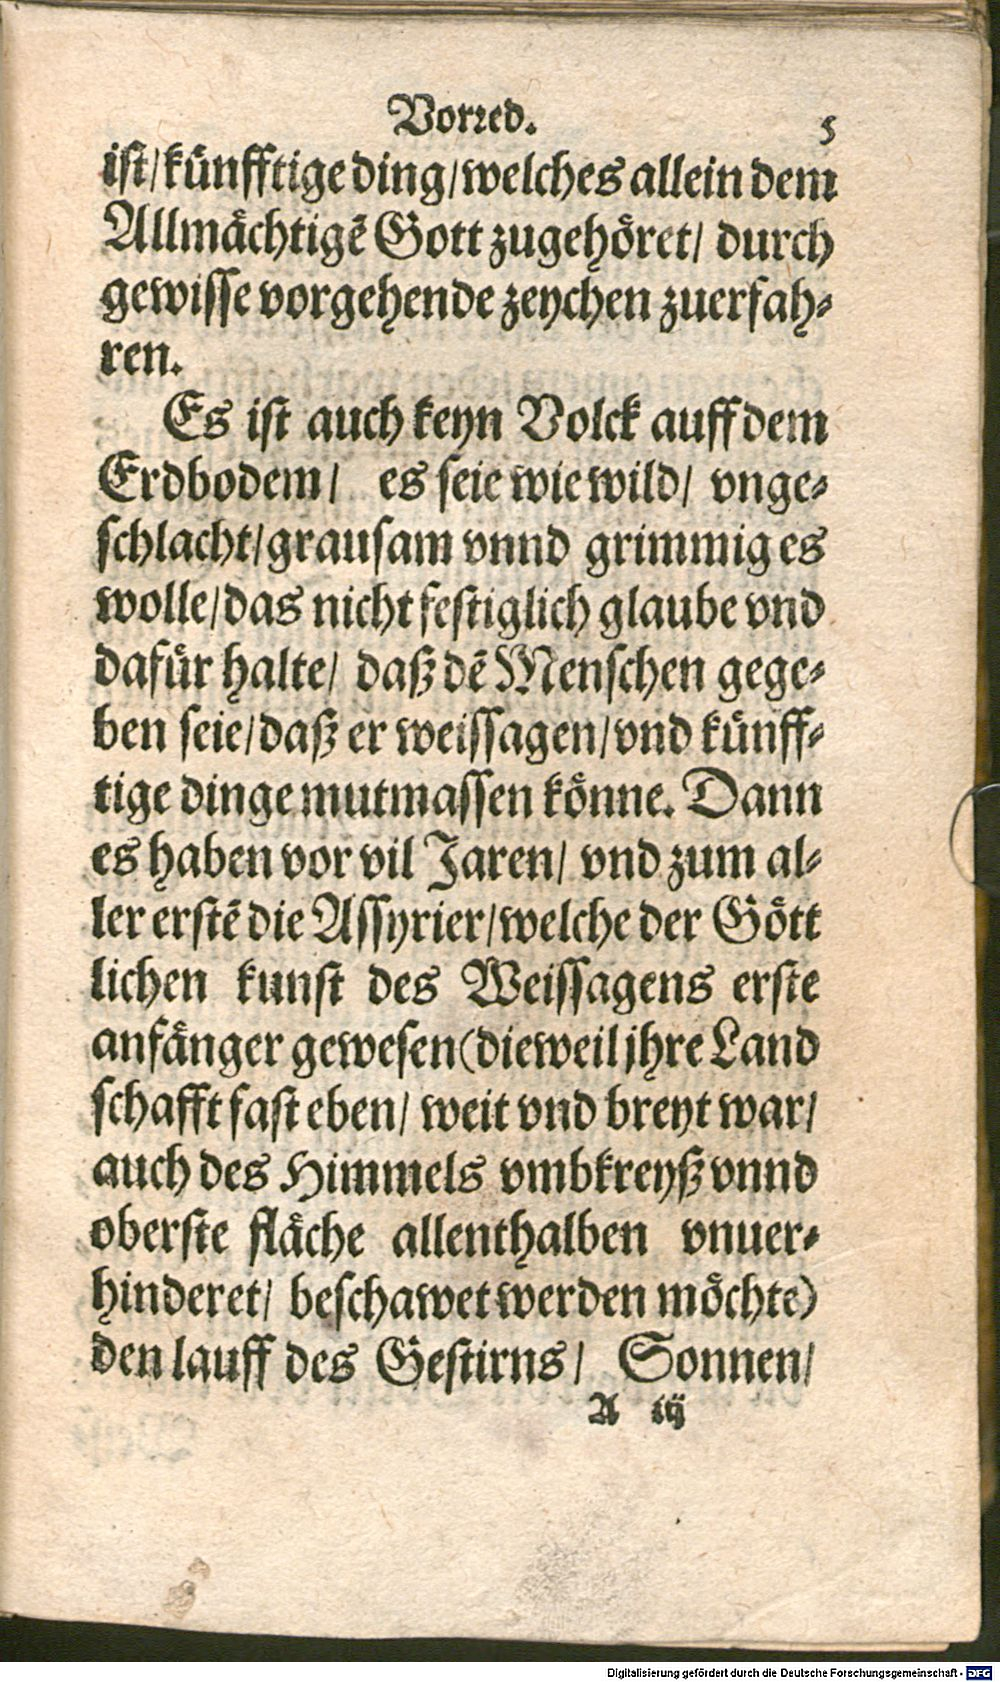 Vorred. 5
ist/ künfftige ding/ welches allein dem
Allmächtigē Gott zugehöret/ durch
gewisse vorgehende zeychen zuerfah-
ren.
Es ist auch keyn Volck auff dem
Erdbodem/ es seie wie wild/ vnge-
schlacht/ grausam vnnd grimmig es
wolle/ das nicht festiglich glaube vnd
dafür halte/ daß dē Menschen gege-
ben seie/ daß er weissagen/ vnd künff-
tige dinge mutmassen könne. Dann
es haben vor vil Jaren/ vnd zum al-
ler erstē die Assyrier/ welche der Gött
lichen kunst des Weissagens erste
anfänger gewesen (dieweil jhre Land
schafft fast eben/ weit vnd breyt war/
auch des Himmels vmbkreyß vnnd
oberste fläche allenthalben vnuer-
hinderet/ beschawet werden möchte)
den lauff des Gestirns/ Sonnen/
A iij
Digitalisierung gefördert durch die Deutsche Forschungsgemeinschaft - DFG